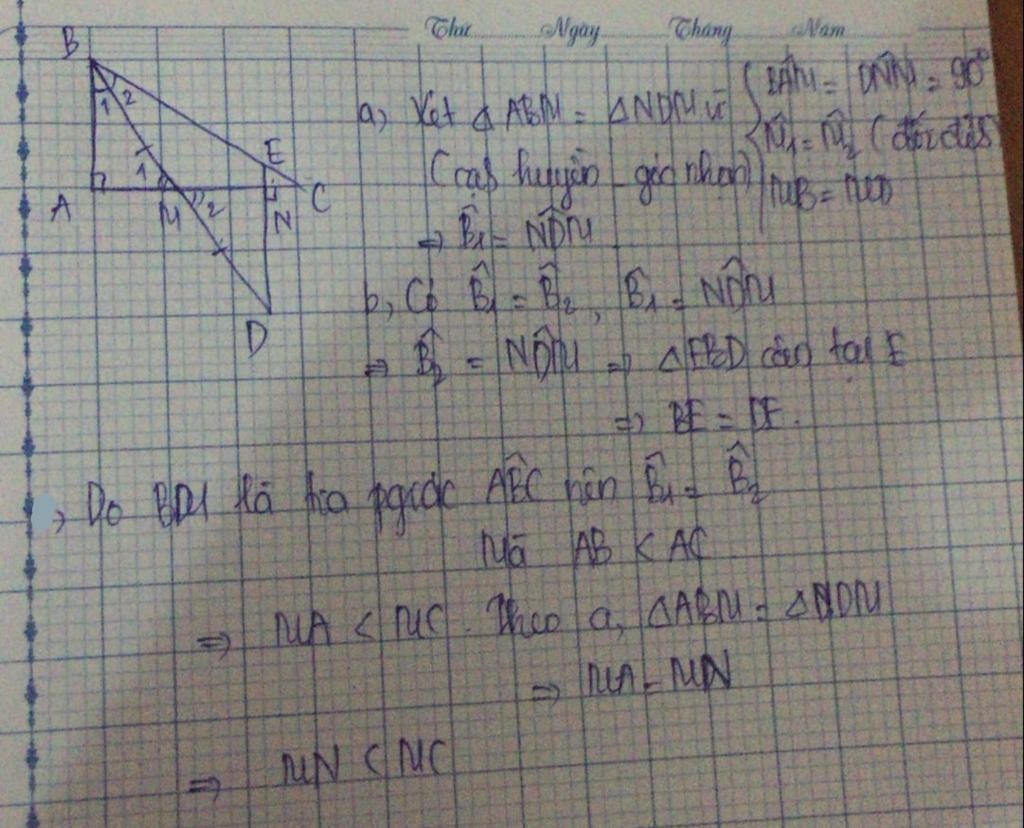 Thứ Ngày Tháng Năm
B
1 2
E
1
A M 2 N C
D
a, Xét △ABM = △NDM vì { BÂM = DN̂M = 90°
M̂1 = M̂2 (đối đỉnh)
(cạnh huyền - góc nhọn) MB = MD
=> B̂1 = ND̂M
b, Có B̂1 = B̂2, B̂1 = ND̂M
=> B̂2 = ND̂M => △EBD cân tại E
=> BE = DE.
, Do BM là tia pgiác AB̂C nên B̂1 = B̂2
Mà AB < AC
=> MA < MC. Theo a, △ABM = △NDM
=> MA = MN
=> MN < MC